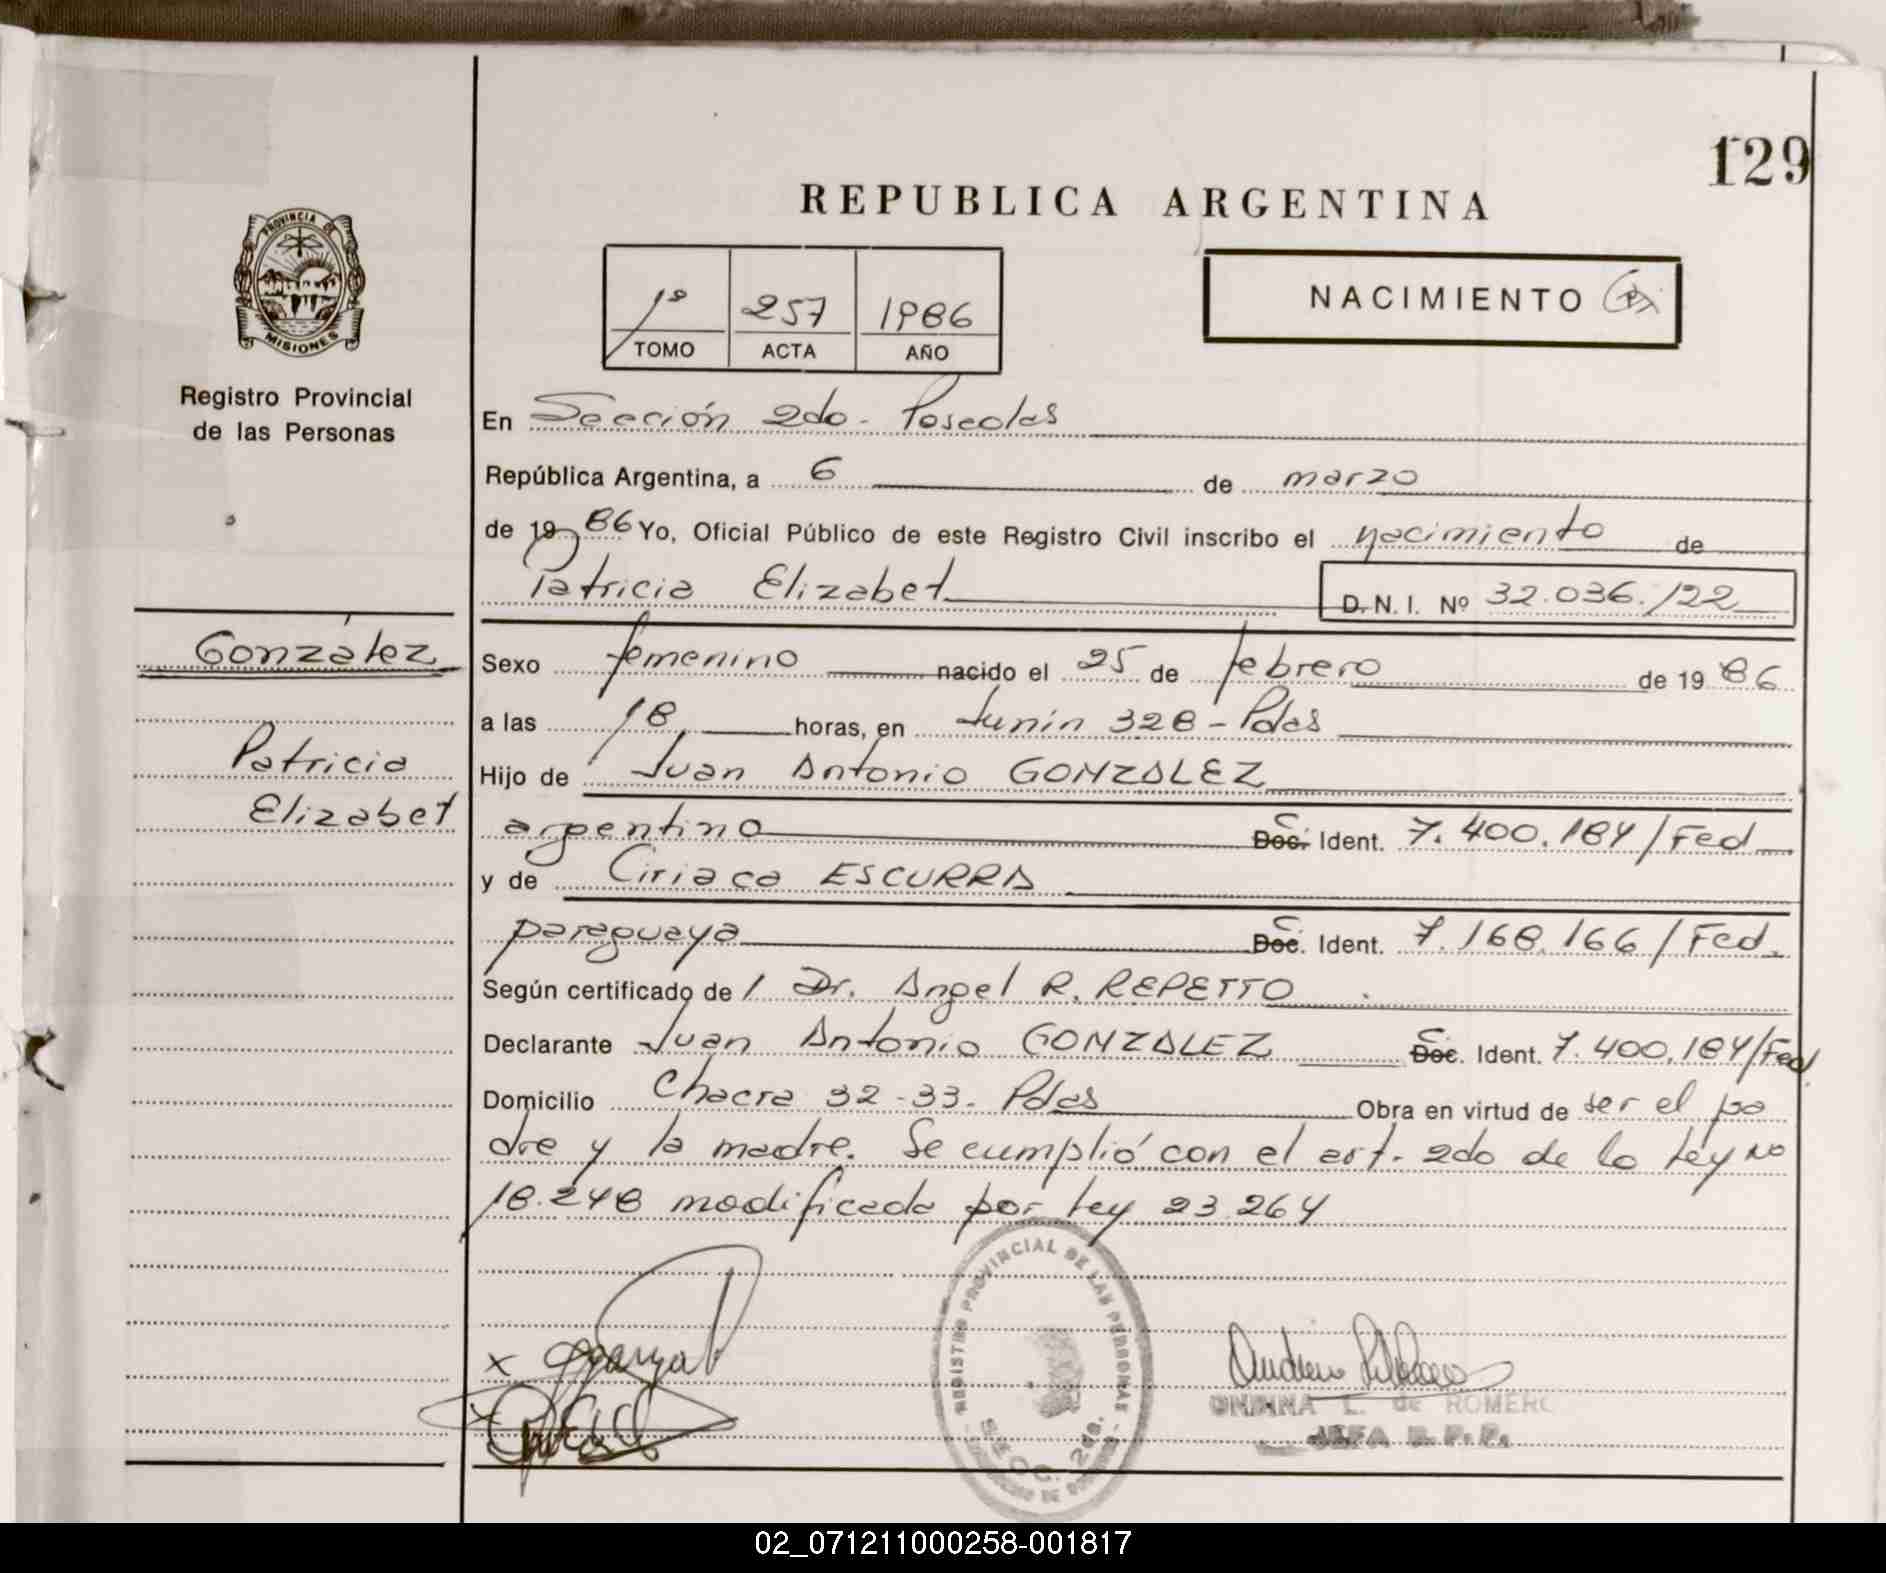 129
REPUBLICA ARGENTINA
PROVINCIA DE
MISIONES
Registro Provincial
de las Personas
1º 257 1986
TOMO ACTA AÑO
NACIMIENTO
En Sección 2do - Posadas
República Argentina, a 6 de marzo
de 1986 Yo, Oficial Público de este Registro Civil inscribo el nacimiento de
Patricia Elizabet D.N.I. Nº 32.036.122
González
Patricia
Elizabet
Sexo femenino nacido el 25 de febrero de 1986
a las 18 horas, en Junín 328 - Pdas
Hijo de Juan Antonio GONZALEZ
argentino C. Doc. Ident. 7.400.184/Fed
y de Ciriaca ESCURRA
paraguaya C. Doc. Ident. 7.168.166/Fed.
Según certificado de / Dr. Angel R. REPETTO
Declarante Juan Antonio GONZALEZ C. Doc. Ident. 7.400.184/Fed.
Domicilio Chacra 32-33. Pdas Obra en virtud de ser el pa
dre y la madre. Se cumplió con el art. 2do de la Ley No
18.248 modificada por Ley 23.264
REGISTRO PROVINCIAL DE LAS PERSONAS
SECC. 2da.
L. de ROMERO
JEFA
02_071211000258-001817